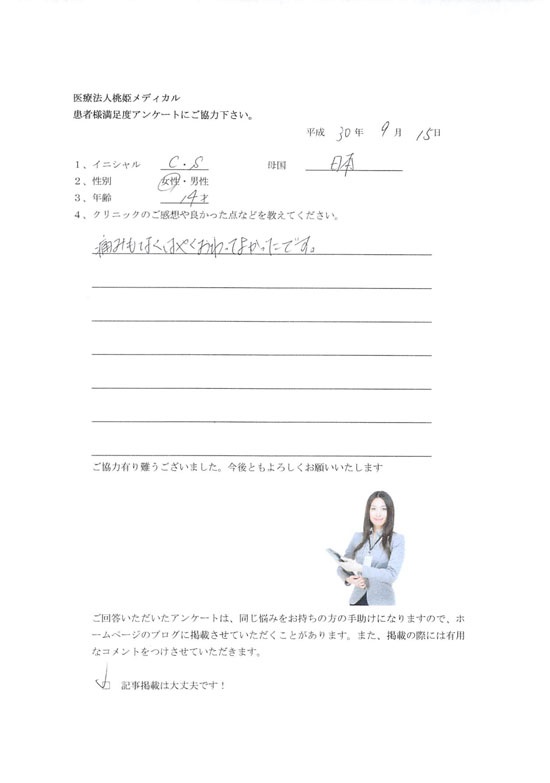 医療法人桃姫メディカル
患者様満足度アンケートにご協力下さい。
平成 30年 9月 15日
1、イニシャル C・S 母国 日本
2、性別 女性・男性
3、年齢 14才
4、クリニックのご感想や良かった点などを教えてください。
痛みもなくはやくおわってよかったです。
ご協力有り難うございました。今後ともよろしくお願いいたします
ご回答いただいたアンケートは、同じ悩みをお持ちの方の手助けになりますので、ホ
ームページのブログに掲載させていただくことがあります。また、掲載の際には有用
なコメントをつけさせていただきます。
□ 記事掲載は大丈夫です！